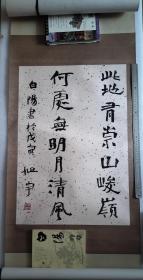 此地有崇山峻嶺
何處無明月清風
白陽書於戊寅